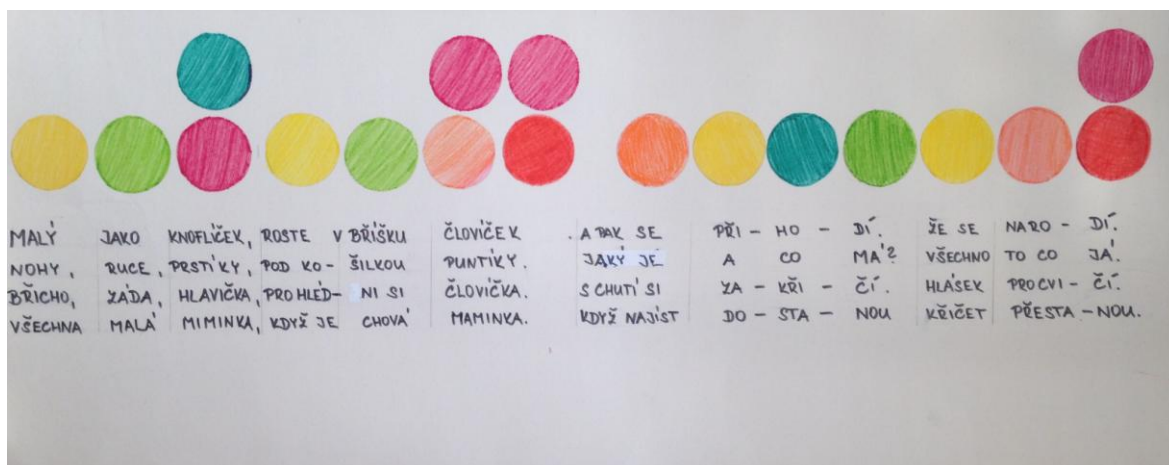 MALÝ JAKO KNOFLÍČEK, ROSTE V BŘÍŠKU ČLOVÍČEK. A PAK SE PŘI - HO - DÍ. ŽE SE NARO - DÍ.
NOHY, RUCE, PRSTÍKY, POD KO- ŠILKOU PUNTÍKY. JAKÝ JE A CO MÁ? VŠECHNO TO CO JÁ.
BŘICHO, ZÁDA, HLAVIČKA, PROHLÉD- NI SI ČLOVÍČKA. S CHUTÍ SI ZA - KŘI - ČÍ. HLÁSEK PROCVI - ČÍ.
VŠECHNA MALÁ MIMINKA, KDYŽ JE CHOVÁ MAMINKA. KDYŽ NAJÍST DO - STA - NOU KŘIČET PŘESTA - NOU.